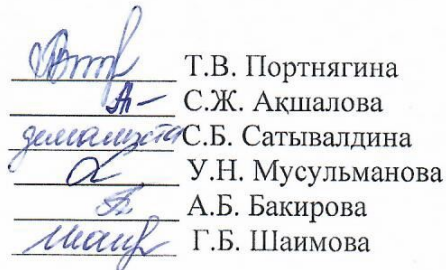 Т.В. Портнягина
С.Ж. Ақшалова
демалыста С.Б. Сатывалдина
У.Н. Мусульманова
А.Б. Бакирова
Г.Б. Шаимова